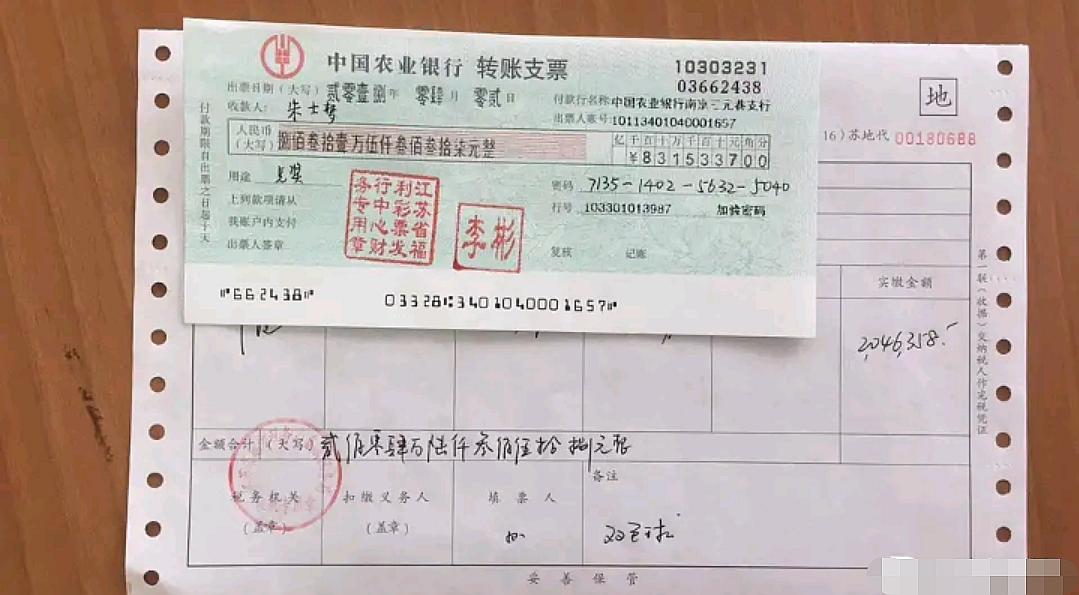 中国农业银行 转账支票
10303231
03662438
出票日期(大写) 贰零壹捌年 零肆月 零贰日
付款行名称:中国农业银行南京三元巷支行
收款人:
出票人账号:10113401040001657
人民币(大写) 捌佰叁拾壹万伍仟叁佰叁拾柒元整
亿千百十万千百十元角分
¥831533700
用途
密码 7135-1402-5632-5040
上列款项请从
行号 103301013987 加验密码
我账户内支付
出票人签章
复核 记账
付款期限自出票之日起十天
江苏省福
利彩票发
行中心财
务专用章
李彬
"662438" 03328:3401040001657"
地
16)苏地代 00180688
实缴金额
2,046,358.-
第一联(收据)交纳税人作完税凭证
金额合计(大写) 贰佰零肆万陆仟叁佰伍拾捌元整
税务机关
(盖章)
扣缴义务人
(盖章)
填票人
备注
双色球
妥善保管